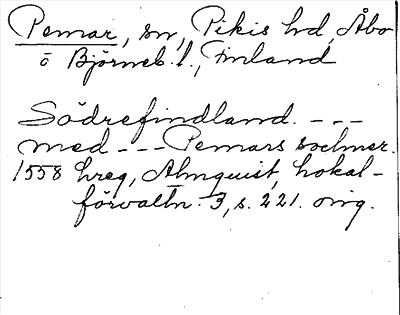 Pemar, sn, Pikis hd, Åbo
o Björneb. l., Finland
Södrefindland. - - -
med - - - Pemars sochner.
1558 hreg, Almquist, Lokal-
förvaltn. 3, s. 221. orig.